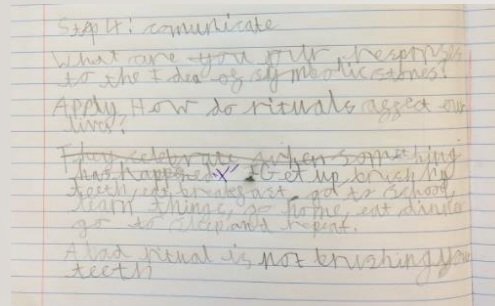 Step 4: comunicate
What are you our responses
to the Idea of symbolic stones?
Apply How do rituals affect our
lives?
They celebrate when something
has happened. I Get up brush my
teeth, eat breakfast, go to school,
learn things, go home, eat dinner
go to sleep and repeat.
A bad ritual is not brushing your
teeth